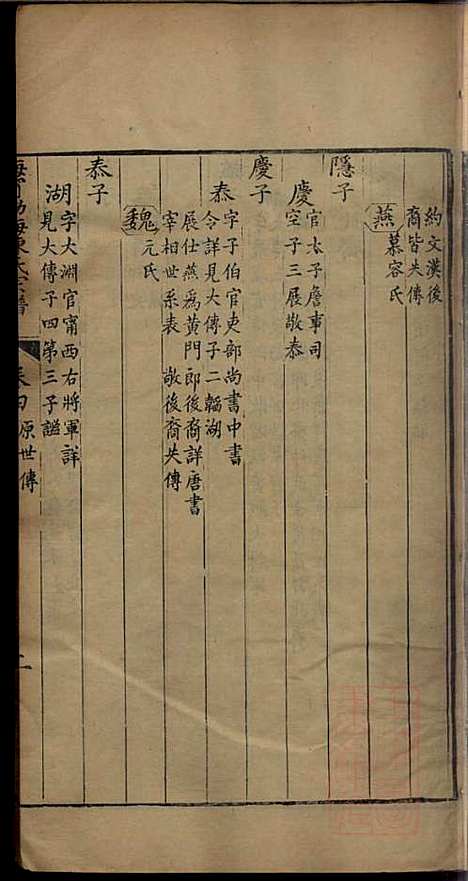 約文漢後
裔皆失傳
燕 慕容氏
隱子
慶 官太子詹事司
空子三展敬泰
慶子
泰 字子伯官吏部尚書中書
令詳見大傳子二韜湖
展仕燕為黃門郎後裔詳唐書
宰相世系表 敬後裔失傳
魏 元氏
泰子
湖 字大淵官甯西右將軍詳
見大傳子四第三子謐
卷四 源世傳